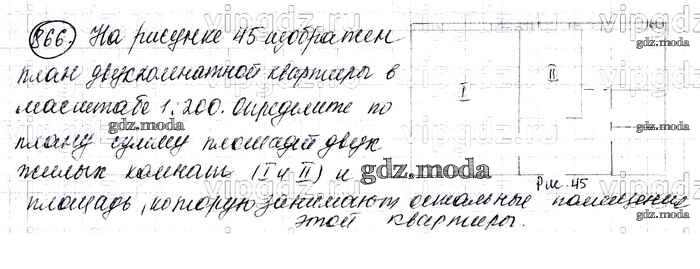 866. На рисунке 45 изображен
план двухкомнатной квартиры в
масштабе 1:200. Определите по
плану сумму площадей двух
жилых комнат (I и II) и
площадь, которую занимают остальные помещения
этой квартиры.
I
II
Рис. 45
gdz.moda
gdz.moda
gdz.moda
gdz.moda
vipgdz.ru
vipgdz.ru
vipgdz.ru